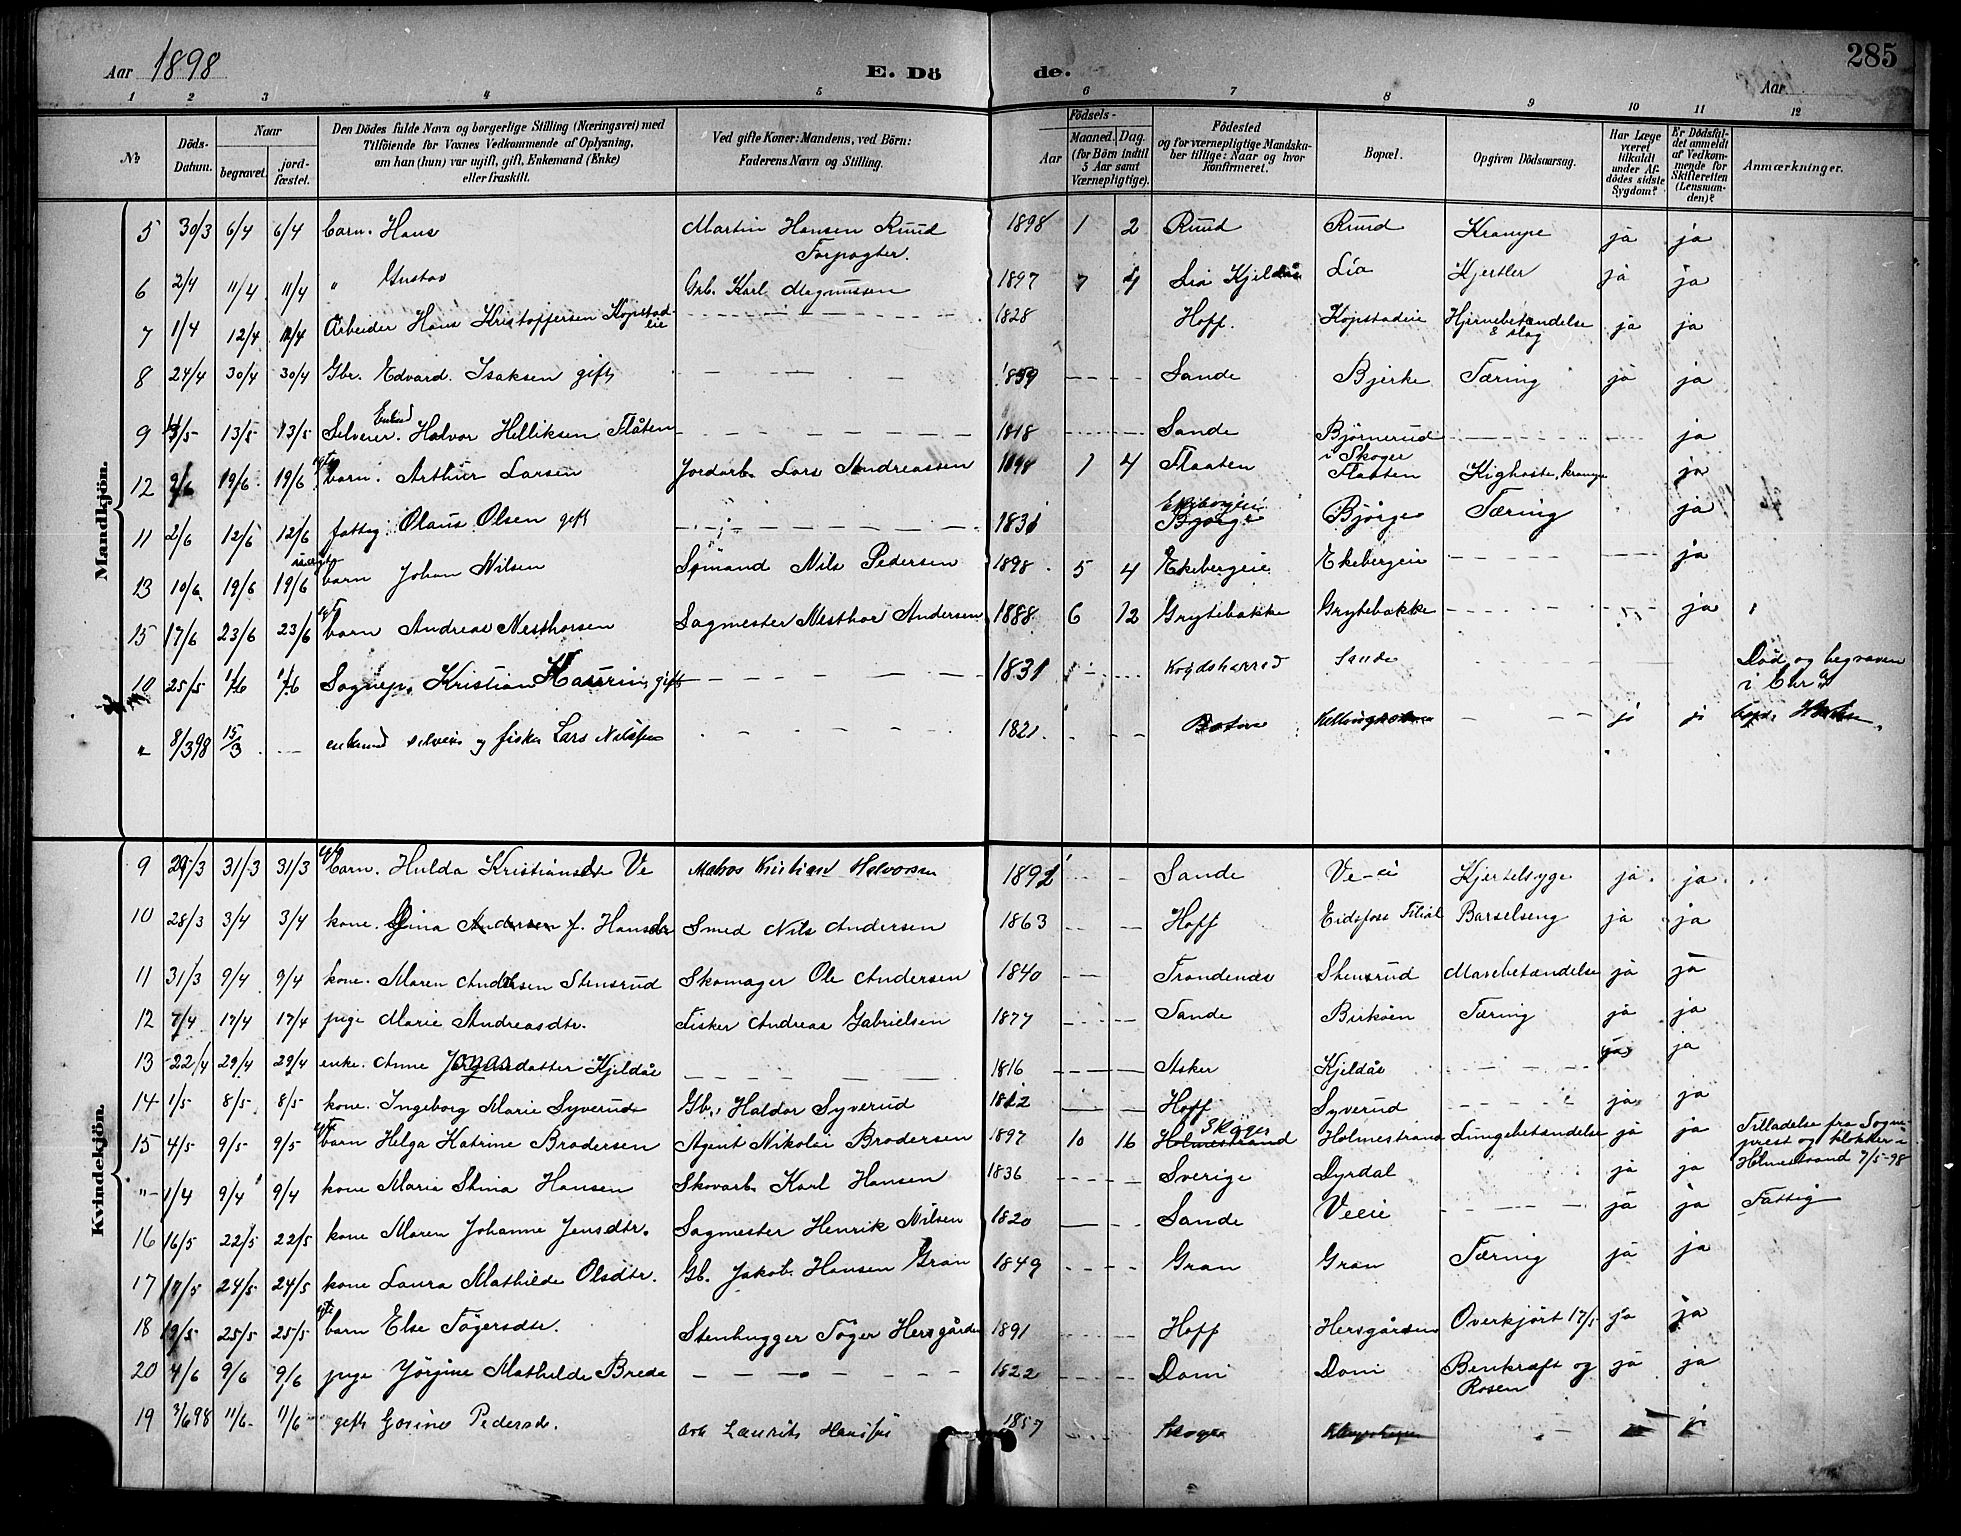 Aar 1898 E. Dö de. Aar 285
1 2 3 4 5 6 7 8 9 10 11 12
No
Döds-Datum.
Naar
begravet.
jord-fæstet.
Den Dödes fulde Navn og borgerlige Stilling (Næringsvei) med
Tilföiende for Voxnes Vedkommende af Oplysning,
om han (hun) var ugift, gift, Enkemand (Enke)
eller fraskilt.
Ved gifte Koner: Mandens, ved Börn:
Faderens Navn og Stilling.
Födsels-
Aar
Maaned. Dag.
(for Börn indtil
5 Aar samt
Værnepligtige).
Födested
og for værnepligtige Mandska-
ber tillige: Naar og hvor
konfirmeret.
Bopæl.
Opgiven Dödsaarsag.
Har Læge
været
tilkaldt
under Af-
dödes sidste
Sygdom?
Er Dödsfal-
det anmeldt
af Vedkom-
mende for
Skifteretten
(Lensman-
den)?
Anmærkninger.
Mandkjön.
5 30/3 6/4 6/4 barn. Hans Martin Hansen Ruud Forpagter. 1898 1 2 Ruud Ruud Krampe ja ja
6 2/4 11/4 11/4 " Gustav Grb. Karl Magnussen 1897 7 4 Lia Kjeldås Lia Kjertler ja ja
7 1/4 12/4 12/4 Arbeider Hans Kristoffersen Kopstad-eie 1828 Hoff. Kopstadeie Hjernebetændelse & slag ja ja
8 24/4 30/4 30/4 Gbr. Edvard. Isaksen gift 1859 Sande Bjerke Tæring ja ja
9 13/5 13/5 Selveier. Enkem Halvor Helliksen Flåten 1818 Sande Bjørnerud i Skoger ja
12 9/6 19/6 19/6 ægte barn. Arthur Larsen Jordarb. Lars Andreassen 1898 1 4 Flaaten Flaaten Kighoste, krampe ja
11 2/6 12/6 12/6 fattig. Olaus Olsen gift 1831 Bjørge Bjørge Tæring ja
13 10/6 19/6 19/6 uægte barn Johan Nilsen Sømand Nils Pedersen 1898 5 4 Ekebergeie Ekebergeie ja
15 17/6 23/6 23/6 ægt barn Andreas Nesthorsen Sagmester Nesthor Andersen 1888 6 12 Grytebakke Grytebakke ja
10 25/5 1/6 1/6 Sognepr. Kristian Haurin gift 1831 Sande Død og begraven i Chr a
" 8/3 98 15/3 enkemd selveier og fisker Lars Nilssen 1821 ja ja
Kvindekjön.
9 29/3 31/3 31/3 ægt barn. Hulda Kristiansdtr Ve Matros Kristian Halvorsen 1892 Sande Ve-ei Kjertelsyge ja ja
10 28/3 3/4 3/4 kone. Gina Andersen f. Hansdtr Smed Nils Andersen 1863 Hoff Eidsfoss Filial Barselseng ja ja
11 31/3 9/4 9/4 kone. Maren Andersen Stensrud Skomager Ole Andersen 1840 Trondenæs Stensrud Mavebetændelse ja ja
12 7/4 17/4 17/4 pige Marie Andreasdtr. Fisker Andreas Gabrielsen 1877 Sande Birköen Tæring ja ja
13 22/4 29/4 29/4 enke. Anne Jonasdatter Kjeldås 1816 Asker Kjeldås ja ja
14 1/5 8/5 8/5 kone. Ingeborg Marie Syverud Gb. Haldor Syverud 1812 Hoff Syverud ja ja
15 4/5 9/5 9/5 ægt barn Helga Katrine Brodersen Agent Nikolai Brodersen 1897 10 16 Holmestrand Skoger Holmestrand Lungebetændelse ja ja Tilladelse fra Sogneprest og klokker i Holmestrand 7/5-98
" 1/4 9/4 9/4 kone Maria Stina Hansen Skovarb. Karl Hansen 1836 Sverige Dyrdal ja ja
16 16/5 22/5 22/5 kone Maren Johanne Jensdtr. Sagmester Henrik Nilsen 1820 Sande Veeie ja ja Fattig
17 17/5 24/5 24/5 kone Laura Mathilde Olsdtr. Gb. Jakob Hansen Gran 1849 Gran Gran Tæring ja ja
18 19/5 25/5 25/5 ægte barn Else Tögersdtr. Stenhugger Töger Hersgården 1891 Hoff Hersgården Overkjört 17/5 ja ja
20 4/6 9/6 9/6 pige Jörgine Mathilde Brede 1822 Domi Domi Benkræft og Rosen ja ja
19 3/6 98 11/6 11/6 gift Gorine Pedersd. Arb Laurits Hanssen 1857 Skoger ja